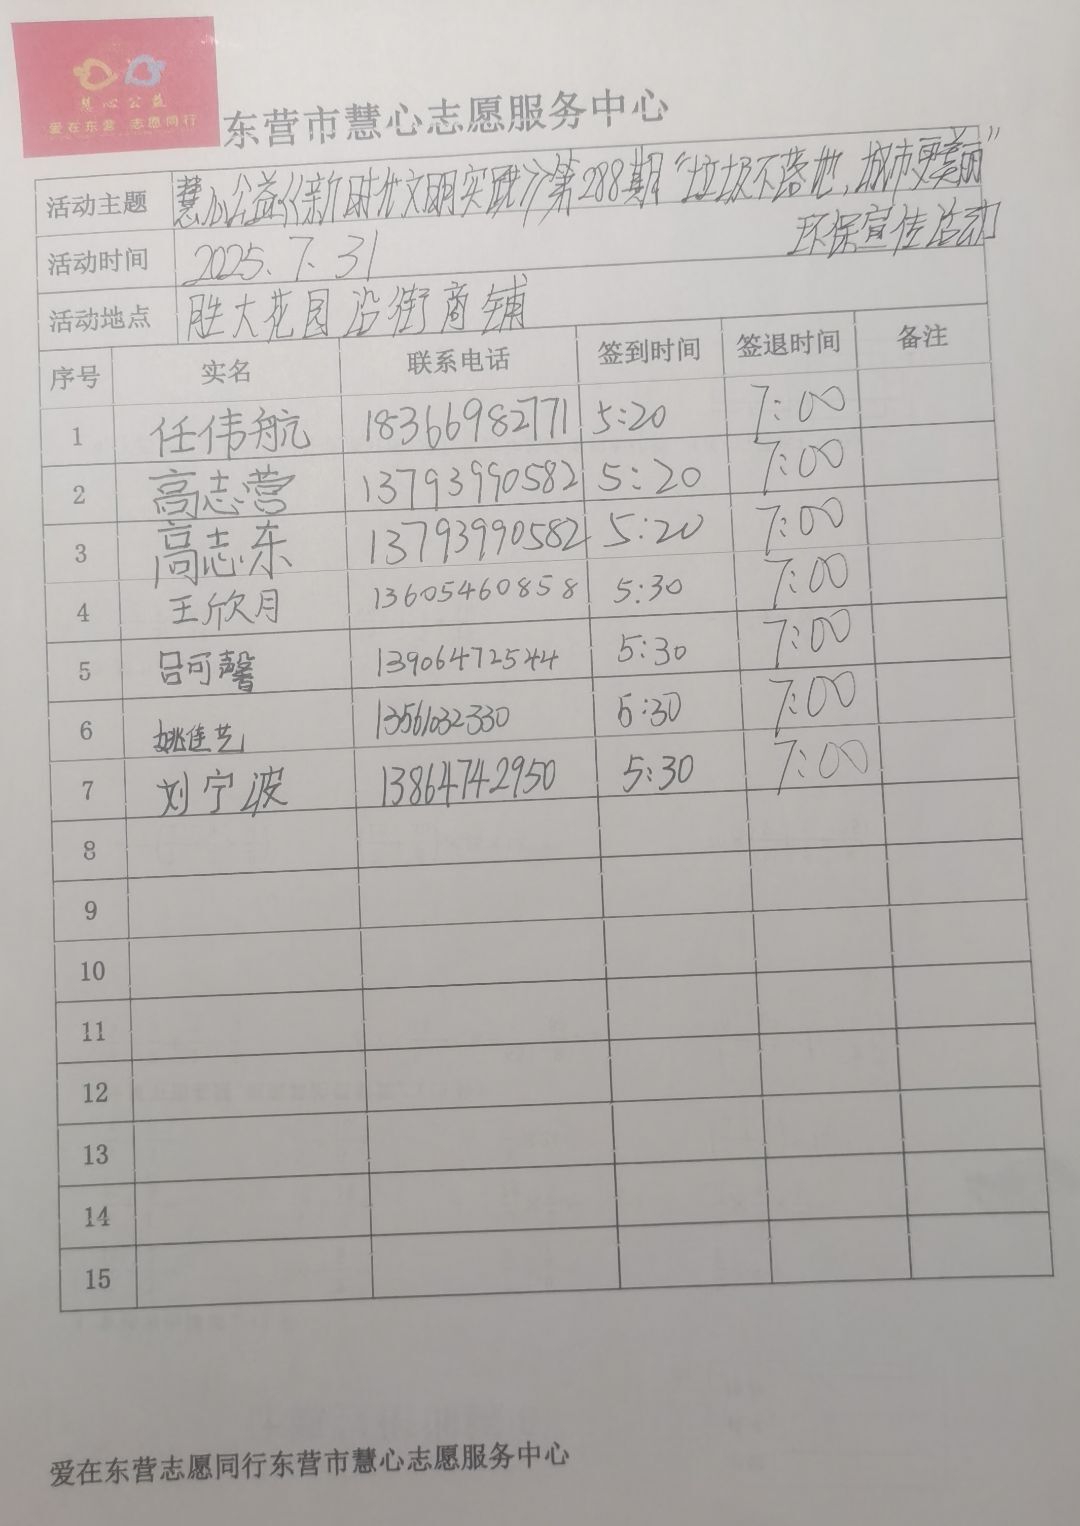 慧心公益
爱在东营 志愿同行
东营市慧心志愿服务中心
活动主题 慧心公益《新时代文明实践》第288期“垃圾不落地，城市更美丽”
环保宣传活动
活动时间 2025.7.31
活动地点 胜大花园沿街商铺
序号 实名 联系电话 签到时间 签退时间 备注
1 任伟航 18366982771 5:20 7:00
2 高志营 13793990582 5:20 7:00
3 高志东 13793990582 5:20 7:00
4 王欣月 13605460858 5:30 7:00
5 吕可馨 13906472544 5:30 7:00
6 姚佳艺 13561032330 5:30 7:00
7 刘宁波 13864742950 5:30 7:00
8
9
10
11
12
13
14
15
爱在东营志愿同行东营市慧心志愿服务中心